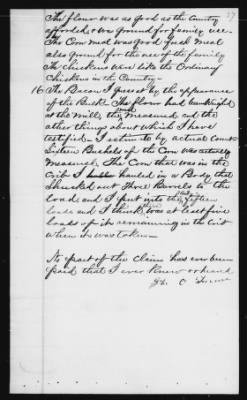 27
The flour was as good as the County
afforded & was ground for family use.
The Corn meal was good fresh meal
also ground for the use of the family
The chickens were like the Ordinary
Chickens in the County—
16 The Bacon I guess at by the appearance
of the Bulk. The flour had been weighed
at the mill, the corn measured and the
other things about which I have
testified I estimate by actual count
Sixteen Bushels of the Corn was actually
measured. The Corn that was in the
Crib I hauled in a Body that
shucked out Three Barrels to the
load and I put into the Crib fifteen
loads and I think there was at least five
loads of it remaining in the Crib
when it was taken—
No part of the claim has ever been
paid that I ever knew or heard